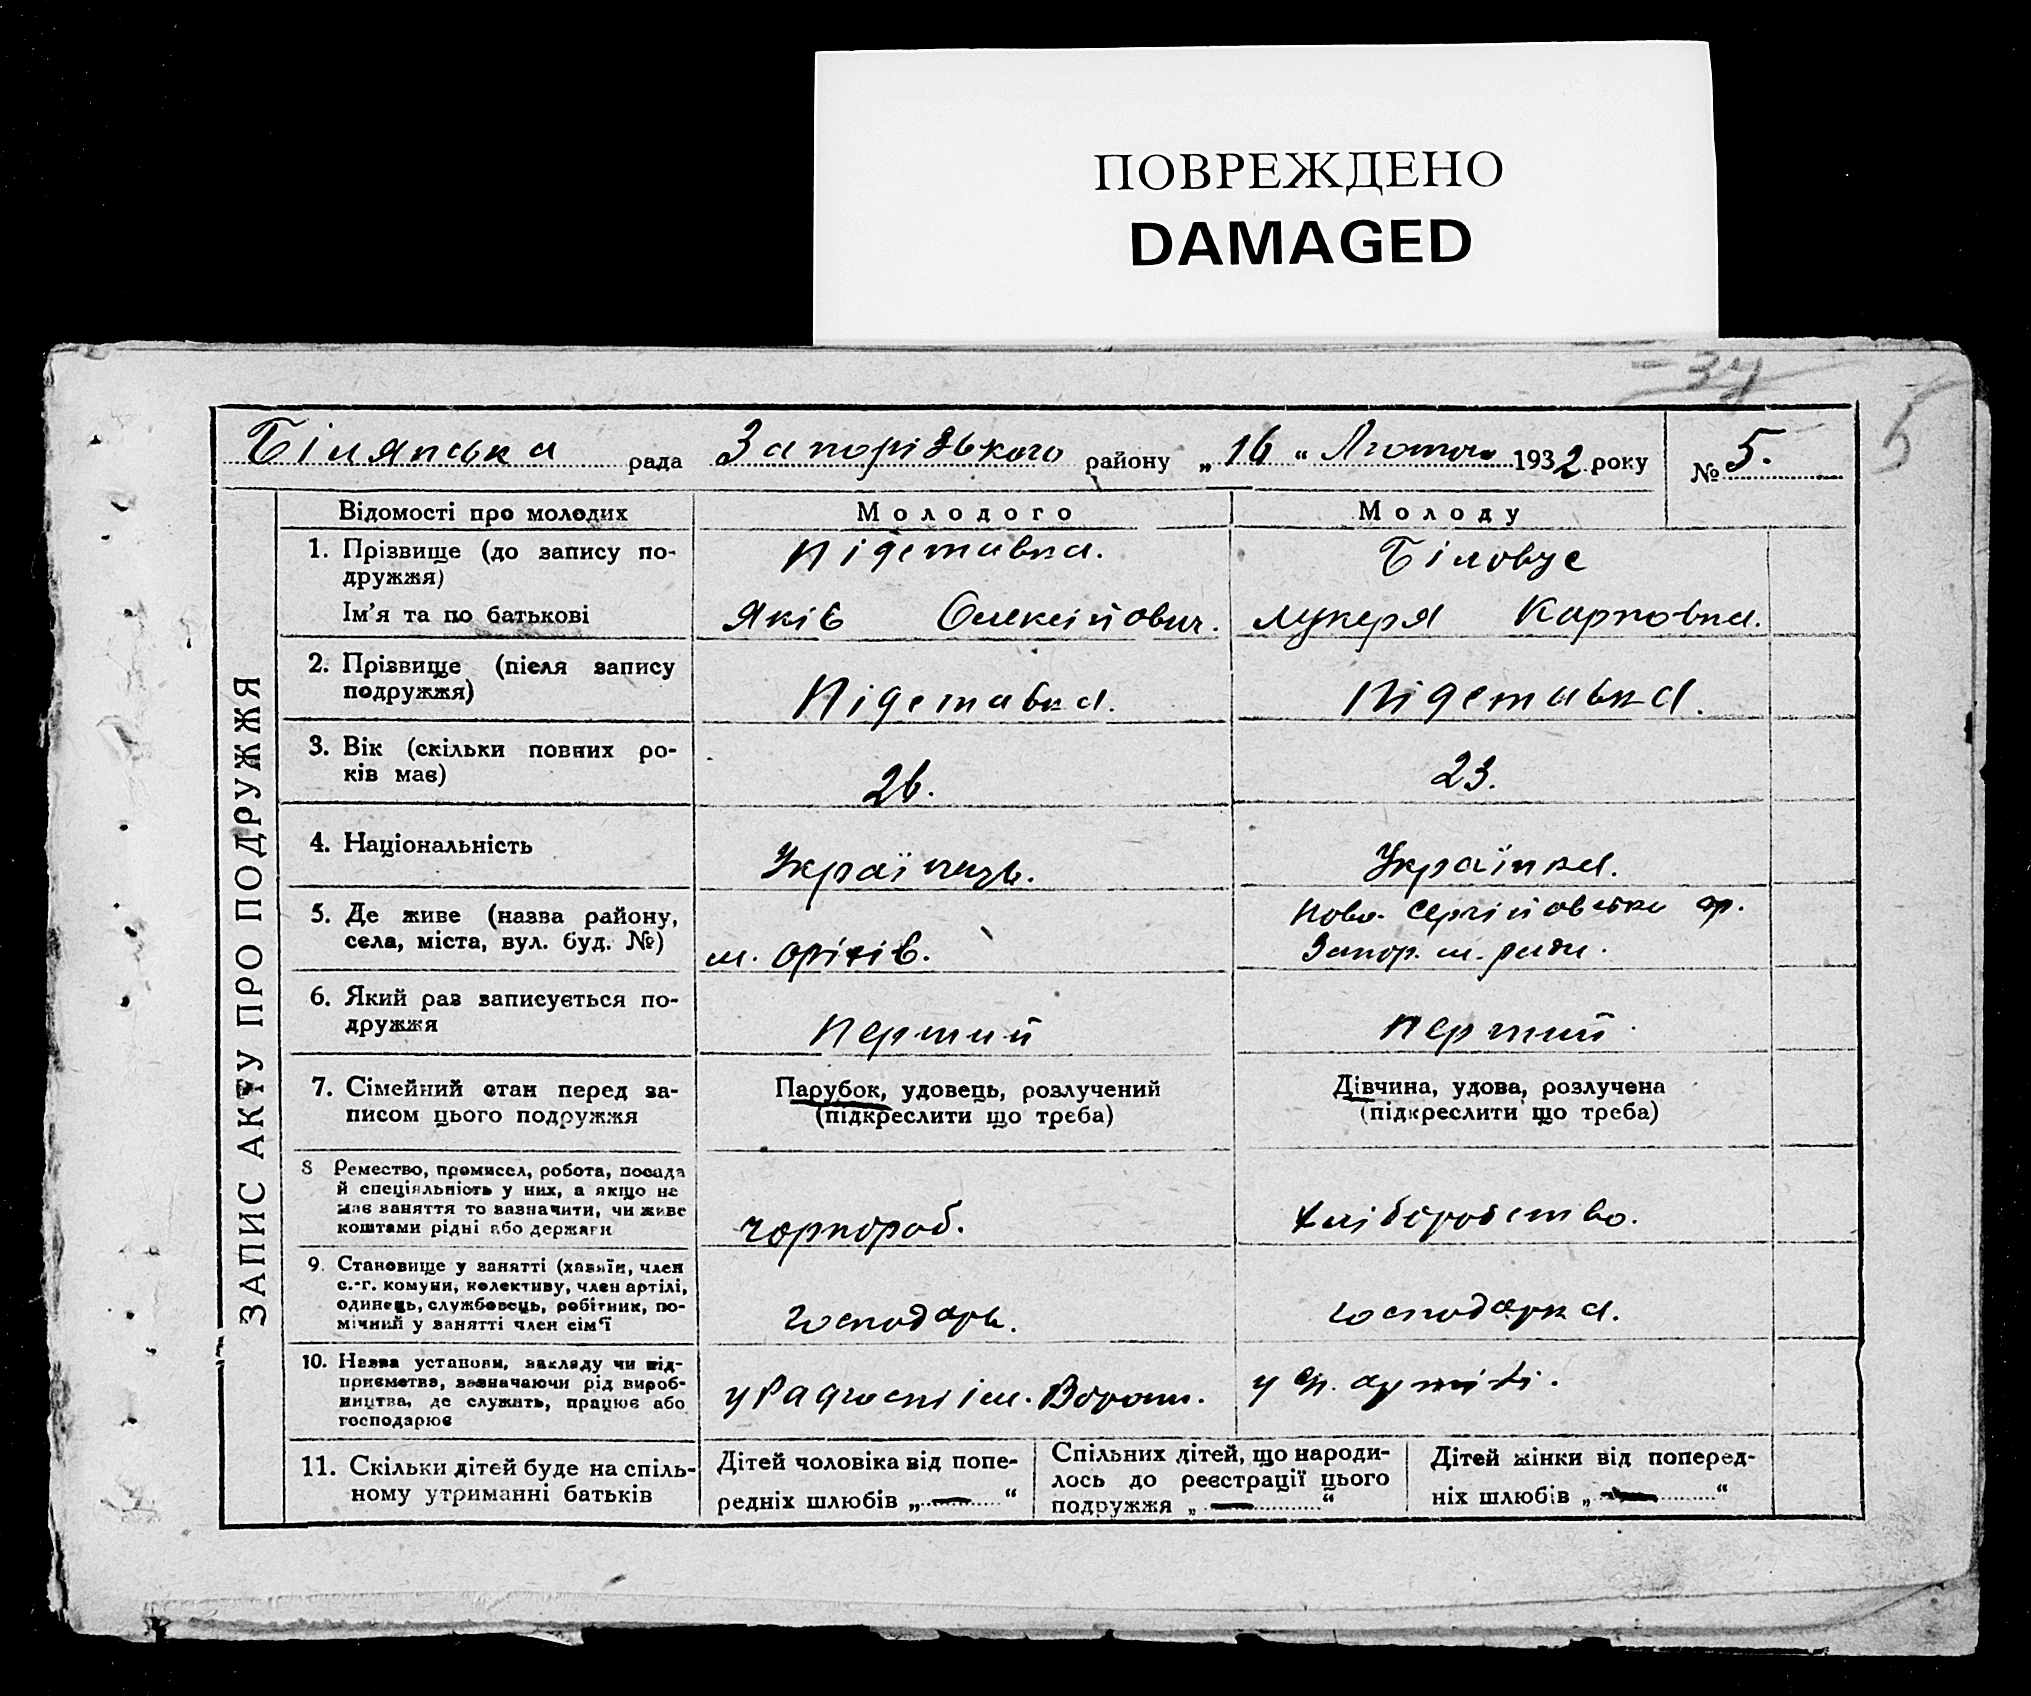 ПОВРЕЖДЕНО
DAMAGED
34
5
Білянська рада Запорізького району „16“ Лютого 1932 року № 5.
ЗАПИС АКТУ ПРО ПОДРУЖЖЯ
Відомості про молодих Молодого Молоду
1. Прізвище (до запису по-
дружжя) Підставка. Біловус
Ім'я та по батькові Яків Олексійович. Лукеря Карповна.
2. Прізвище (після запису
подружжя) Підставка. Підставка.
3. Вік (скільки повних ро-
ків має) 26. 23.
4. Національність Українець. Українка.
5. Де живе (назва району,
села, міста, вул. буд. №) м. Оріхів. Ново-Сергійовка
Запор. м. ради.
6. Який раз записується по-
дружжя Перший Перший
7. Сімейний стан перед за-
писом цього подружжя
Парубок, удовець, розлучений
(підкреслити що треба)
Дівчина, удова, розлучена
(підкреслити що треба)
8 Ремество, промисел, робота, посада
й спеціяльність у них, а якщо не
має заняття то зазначити, чи живе
коштами рідні або держави чорнороб. хліборобство.
9. Становище у занятті (хазяїн, член
с.-г. комуни, колективу, член артілі,
одинець, службовець, робітник, по-
мічний у занятті член сім'ї господарь. господарка.
10. Назва установи, закладу чи під-
приємства, зазначаючи рід вироб-
ництва, де служить, працює або
господарює у Радгоспі ім. Ворош. у артілі.
11. Скільки дітей буде на спіль-
ному утриманні батьків
Дітей чоловіка від попе-
редніх шлюбів „—“
Спільних дітей, що народи-
лось до реєстрації цього
подружжя „—“
Дітей жінки від поперед-
ніх шлюбів „—“